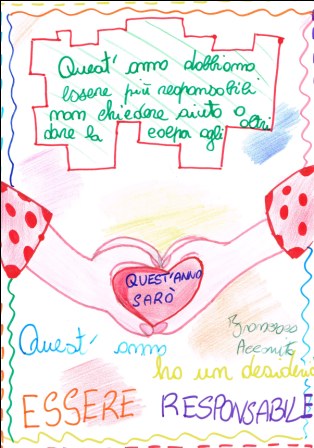 Quest' anno dobbiamo
essere più responsabili
non chiedere aiuto o
dare la colpa agli altri
QUEST'ANNO
SARÒ
Quest' anno
ho un desiderio
ESSERE RESPONSABILE